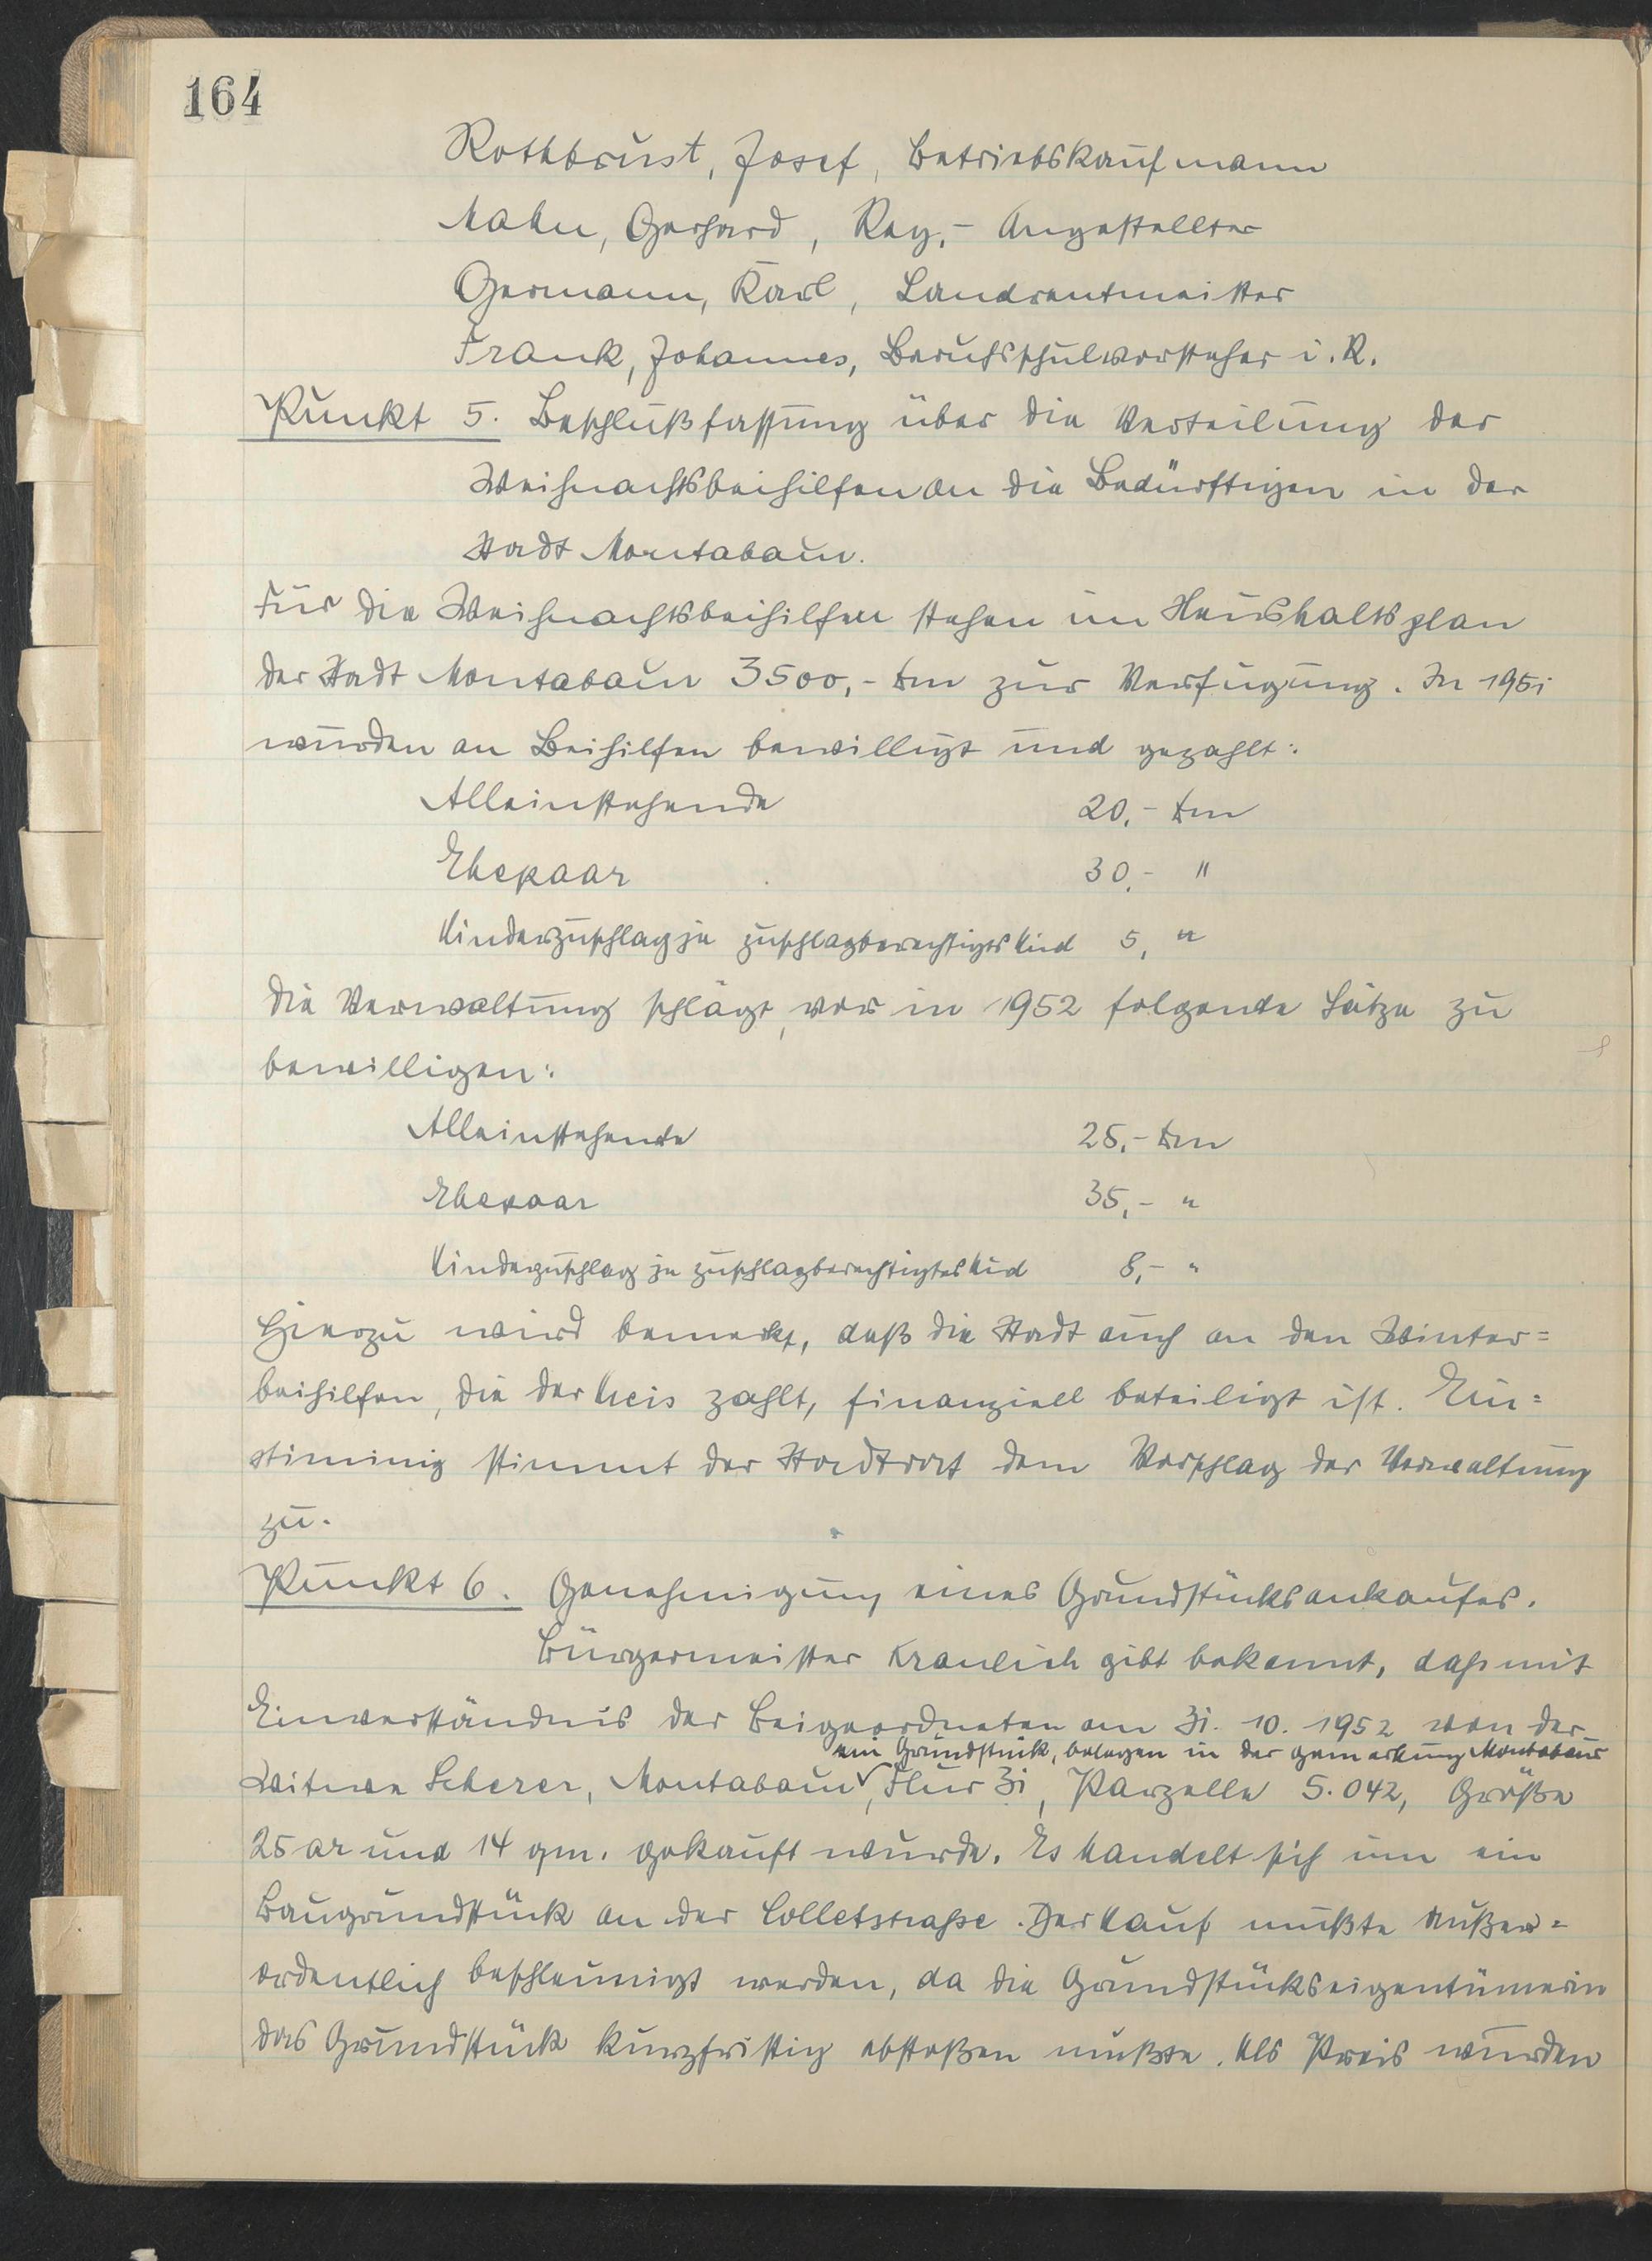 164
Rothbrust, Josef, Betriebskaufmann
Mahn, Gerhard, Reg.- Angestellter
Germann, Karl, Landrentmeister
Frank, Johannes, Berufsschulvorsteher i. R.
Punkt 5. Beschlußfassung über die Verteilung der
Weihnachtsbeihilfen an die Bedürftigen in der
Stadt Montabaur.
Für die Weihnachtsbeihilfen stehen im Haushaltsplan
der Stadt Montabaur 3500,- Dm zur Verfügung. In 1951
wurden an Beihilfen bewilligt und gezahlt:
Alleinstehende 20,- Dm
Ehepaar 30,- "
Kinderzuschlag je zuschlagberechtigts Kind 5, "
Die Verwaltung schlägt, vor in 1952 folgende Sätze zu
bewilligen:
Alleinstehende 25,- Dm
Ehepaar 35,- "
Kinderzuschlag je zuschlagberechtigtes Kid 8,- "
Hierzu wird bemerkt, daß die Stadt auch an den Winter=
beihilfen, die der Kreis zahlt, finanziell beteiligt ist. Ein=
stimmig stimmt der Stadtrat dem Vorschlag der Verwaltung
zu.
Punkt 6. Genehmigung eines Grundstücksankaufes.
Bürgermeister Kraulich gibt bekannt, dass mit
Einverständnis der Beigeordneten am 31. 10. 1952 von der
ein Grundstück, belegen in der Gemarkung Montabaur
Witwe Scherer, Montabaur, Flur 31, Parzelle 5.042, Größe
25 ar und 14 qm. gekauft wurde. Es handelt sich um ein
Baugrundstück an der Colletstrasse. Der Kauf mußte außer=
ordentlich beschleunigt werden, da die Grundstückseigentümerin
das Grundstück kurzfristig abstoßen mußte. Als Preis wurden